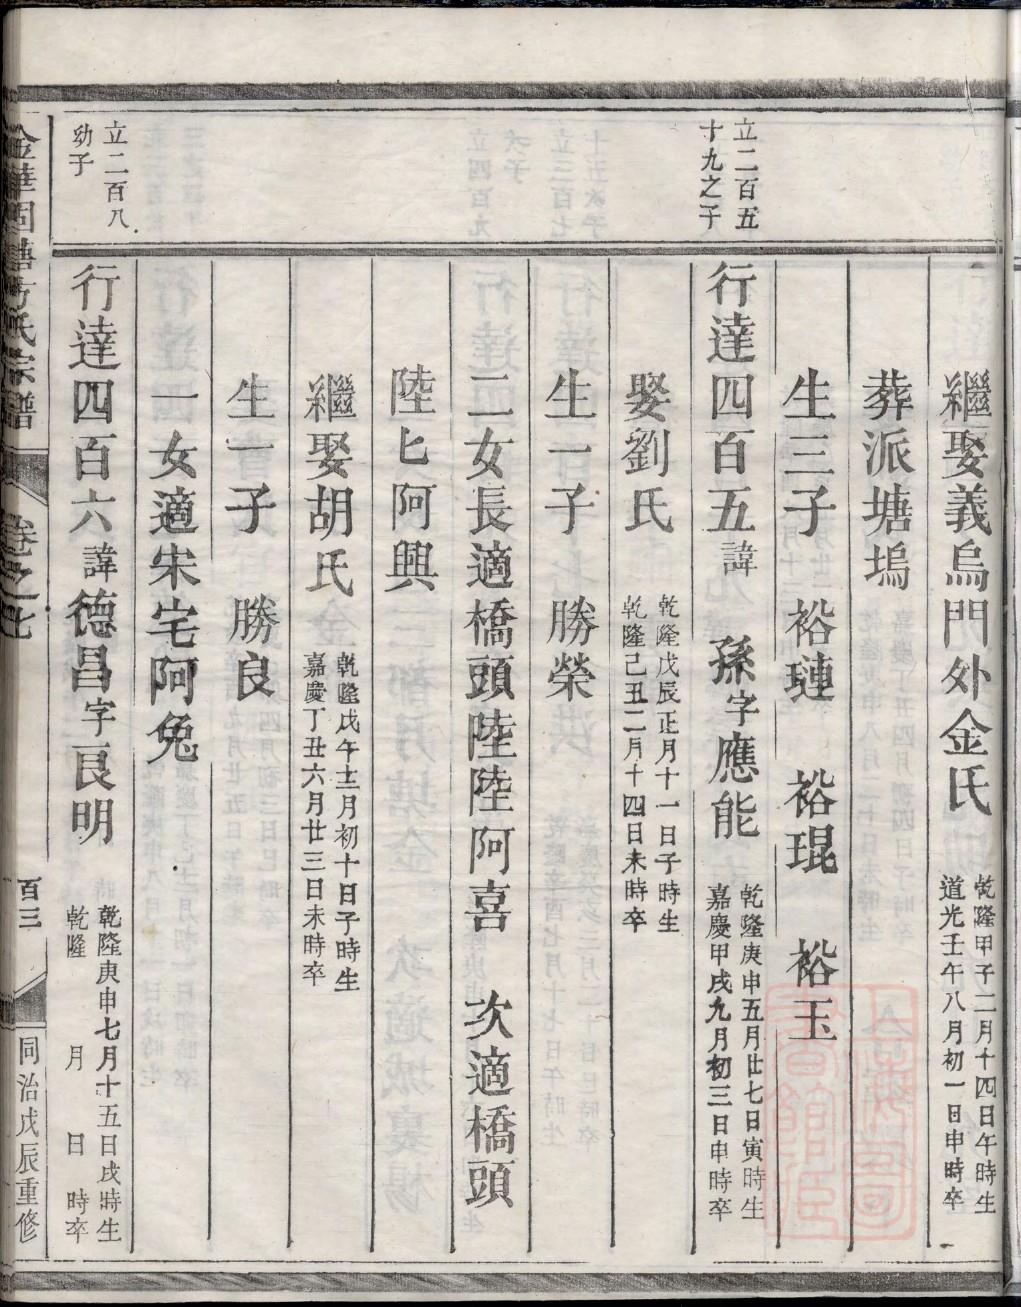 繼娶義烏門外金氏 乾隆甲子二月十四日午時生
道光壬午八月初一日申時卒
葬派塘塢
生三子 裕璉 裕琨 裕玉
立二百五
十九之子
行達四百五諱 孫字應能 乾隆庚申五月廿七日寅時生
嘉慶甲戌九月初三日申時卒
娶劉氏 乾隆戊辰正月十一日子時生
乾隆己丑二月十四日未時卒
生一子 勝榮
二女長適橋頭陸陸阿喜 次適橋頭
陸匕阿興
繼娶胡氏 乾隆戊午十二月初十日子時生
嘉慶丁丑六月廿三日未時卒
生一子 勝良
一女適宋宅阿兔
立二百八
幼子
行達四百六諱德昌字良明 乾隆庚申七月十五日戌時生
乾隆 月 日 時卒
金華 氏宗譜 卷之七 百三 同治戊辰重修